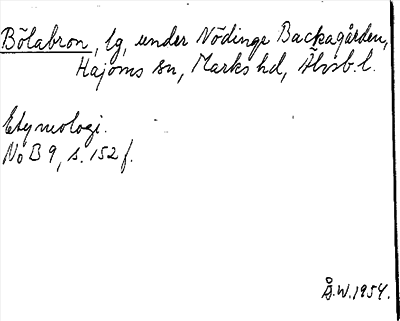 Bölabron, lg, under Nödinge Backagården,
Hajoms sn, Marks hd, Älvsb. l.
Etymologi.
NoB 9, s. 152 f.
Å.W. 1954.